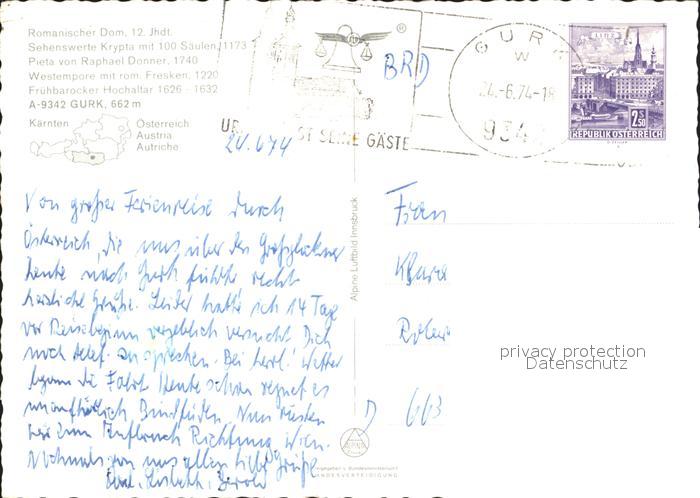 Romanischer Dom, 12. Jhdt.
Sehenswerte Krypta mit 100 Säulen, 1173
Pieta von Raphael Donner, 1740
Westempore mit rom. Fresken, 1220
Frühbarocker Hochaltar 1626 - 1632
A-9342 GURK, 662 m
Kärnten
Österreich
Austria
Autriche
®
ST SEINE GÄSTE
BRD
GURK
W
24.-6.74-18
934
LINZ
2.50
REPUBLIK ÖSTERREICH
24.6.74
Von großer Ferienreise durch
Österreich, die uns über den Großglockner
heute nach Gurk führte recht
herzliche Grüße. Leider hatte ich 14 Tage
vor Reisebeginn vergeblich versucht Dich
noch telef. zu sprechen. Bei herrl. Wetter
begann die Fahrt. Heute schon regnet es
unaufhörlich Bindfäden. Nun rüsten
wir zum Aufbruch Richtung Wien.
Nochmals von uns allen liebe Grüße
Lisbeth,
Alpine Luftbild Innsbruck
Frau
Klara
D 663
privacy protection
Datenschutz
LANDESVERTEIDIGUNG